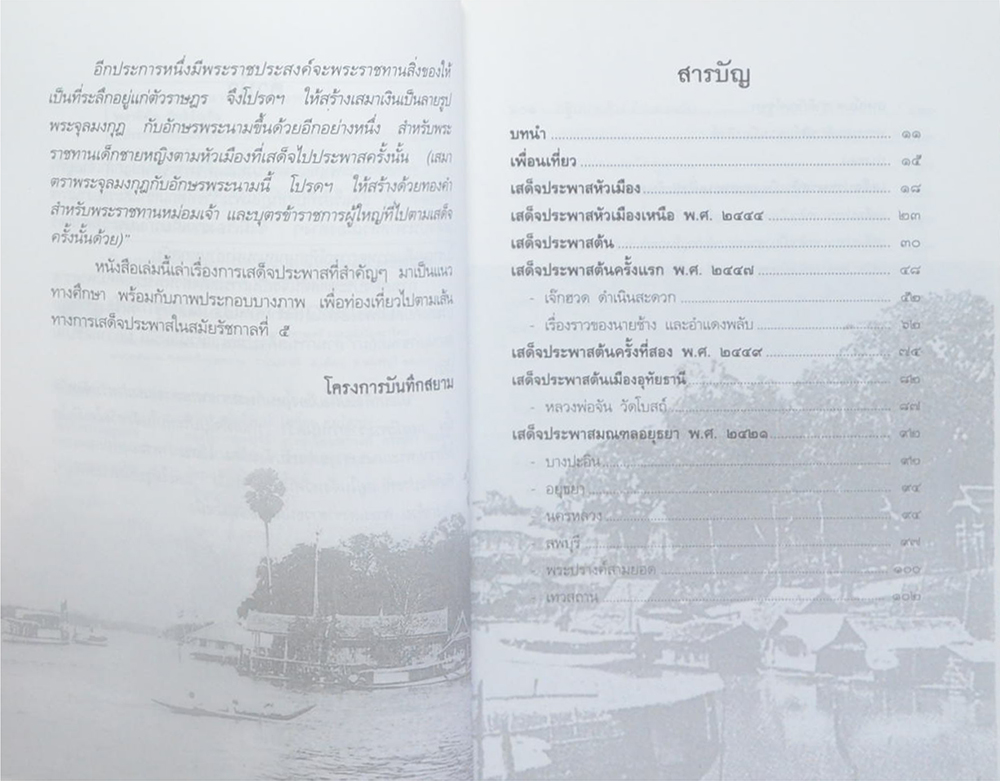 อีกประการหนึ่งมีพระราชประสงค์จะพระราชทานสิ่งของให้
เป็นที่ระลึกอยู่แก่ตัวราษฎร จึงโปรดฯ ให้สร้างเสมาเงินเป็นลายรูป
พระจุลมงกุฎ กับอักษรพระนามขึ้นด้วยอีกอย่างหนึ่ง สำหรับพระ
ราชทานเด็กชายหญิงตามหัวเมืองที่เสด็จไปประพาสครั้งนั้น (เสมา
ตราพระจุลมงกุฎกับอักษรพระนามนี้ โปรดฯ ให้สร้างด้วยทองคำ
สำหรับพระราชทานหม่อมเจ้า และบุตรข้าราชการผู้ใหญ่ที่ไปตามเสด็จ
ครั้งนั้นด้วย)"
หนังสือเล่มนี้เล่าเรื่องการเสด็จประพาสที่สำคัญๆ มาเป็นแนว
ทางศึกษา พร้อมกับภาพประกอบบางภาพ เพื่อท่องเที่ยวไปตามเส้น
ทางการเสด็จประพาสในสมัยรัชกาลที่ ๕
โครงการบันทึกสยาม
สารบัญ
บทนำ ๑๑
เพื่อนเที่ยว ๑๕
เสด็จประพาสหัวเมือง ๑๘
เสด็จประพาสหัวเมืองเหนือ พ.ศ. ๒๔๔๔ ๒๓
เสด็จประพาสต้น ๓๐
เสด็จประพาสต้นครั้งแรก พ.ศ. ๒๔๔๗ ๔๘
- เจ๊กฮวด ดำเนินสะดวก ๕๒
- เรื่องราวของนายช้าง และอำแดงพลับ ๖๒
เสด็จประพาสต้นครั้งที่สอง พ.ศ. ๒๔๔๙ ๗๔
เสด็จประพาสต้นเมืองอุทัยธานี ๘๒
- หลวงพ่อจัน วัดโบสถ์ ๘๗
เสด็จประพาสมณฑลอยุธยา พ.ศ. ๒๔๒๑ ๙๒
- บางปะอิน ๙๒
- อยุธยา ๙๔
- นครหลวง ๙๔
- ลพบุรี ๙๗
- พระปรางค์สามยอด ๑๐๐
- เทวสถาน ๑๐๒